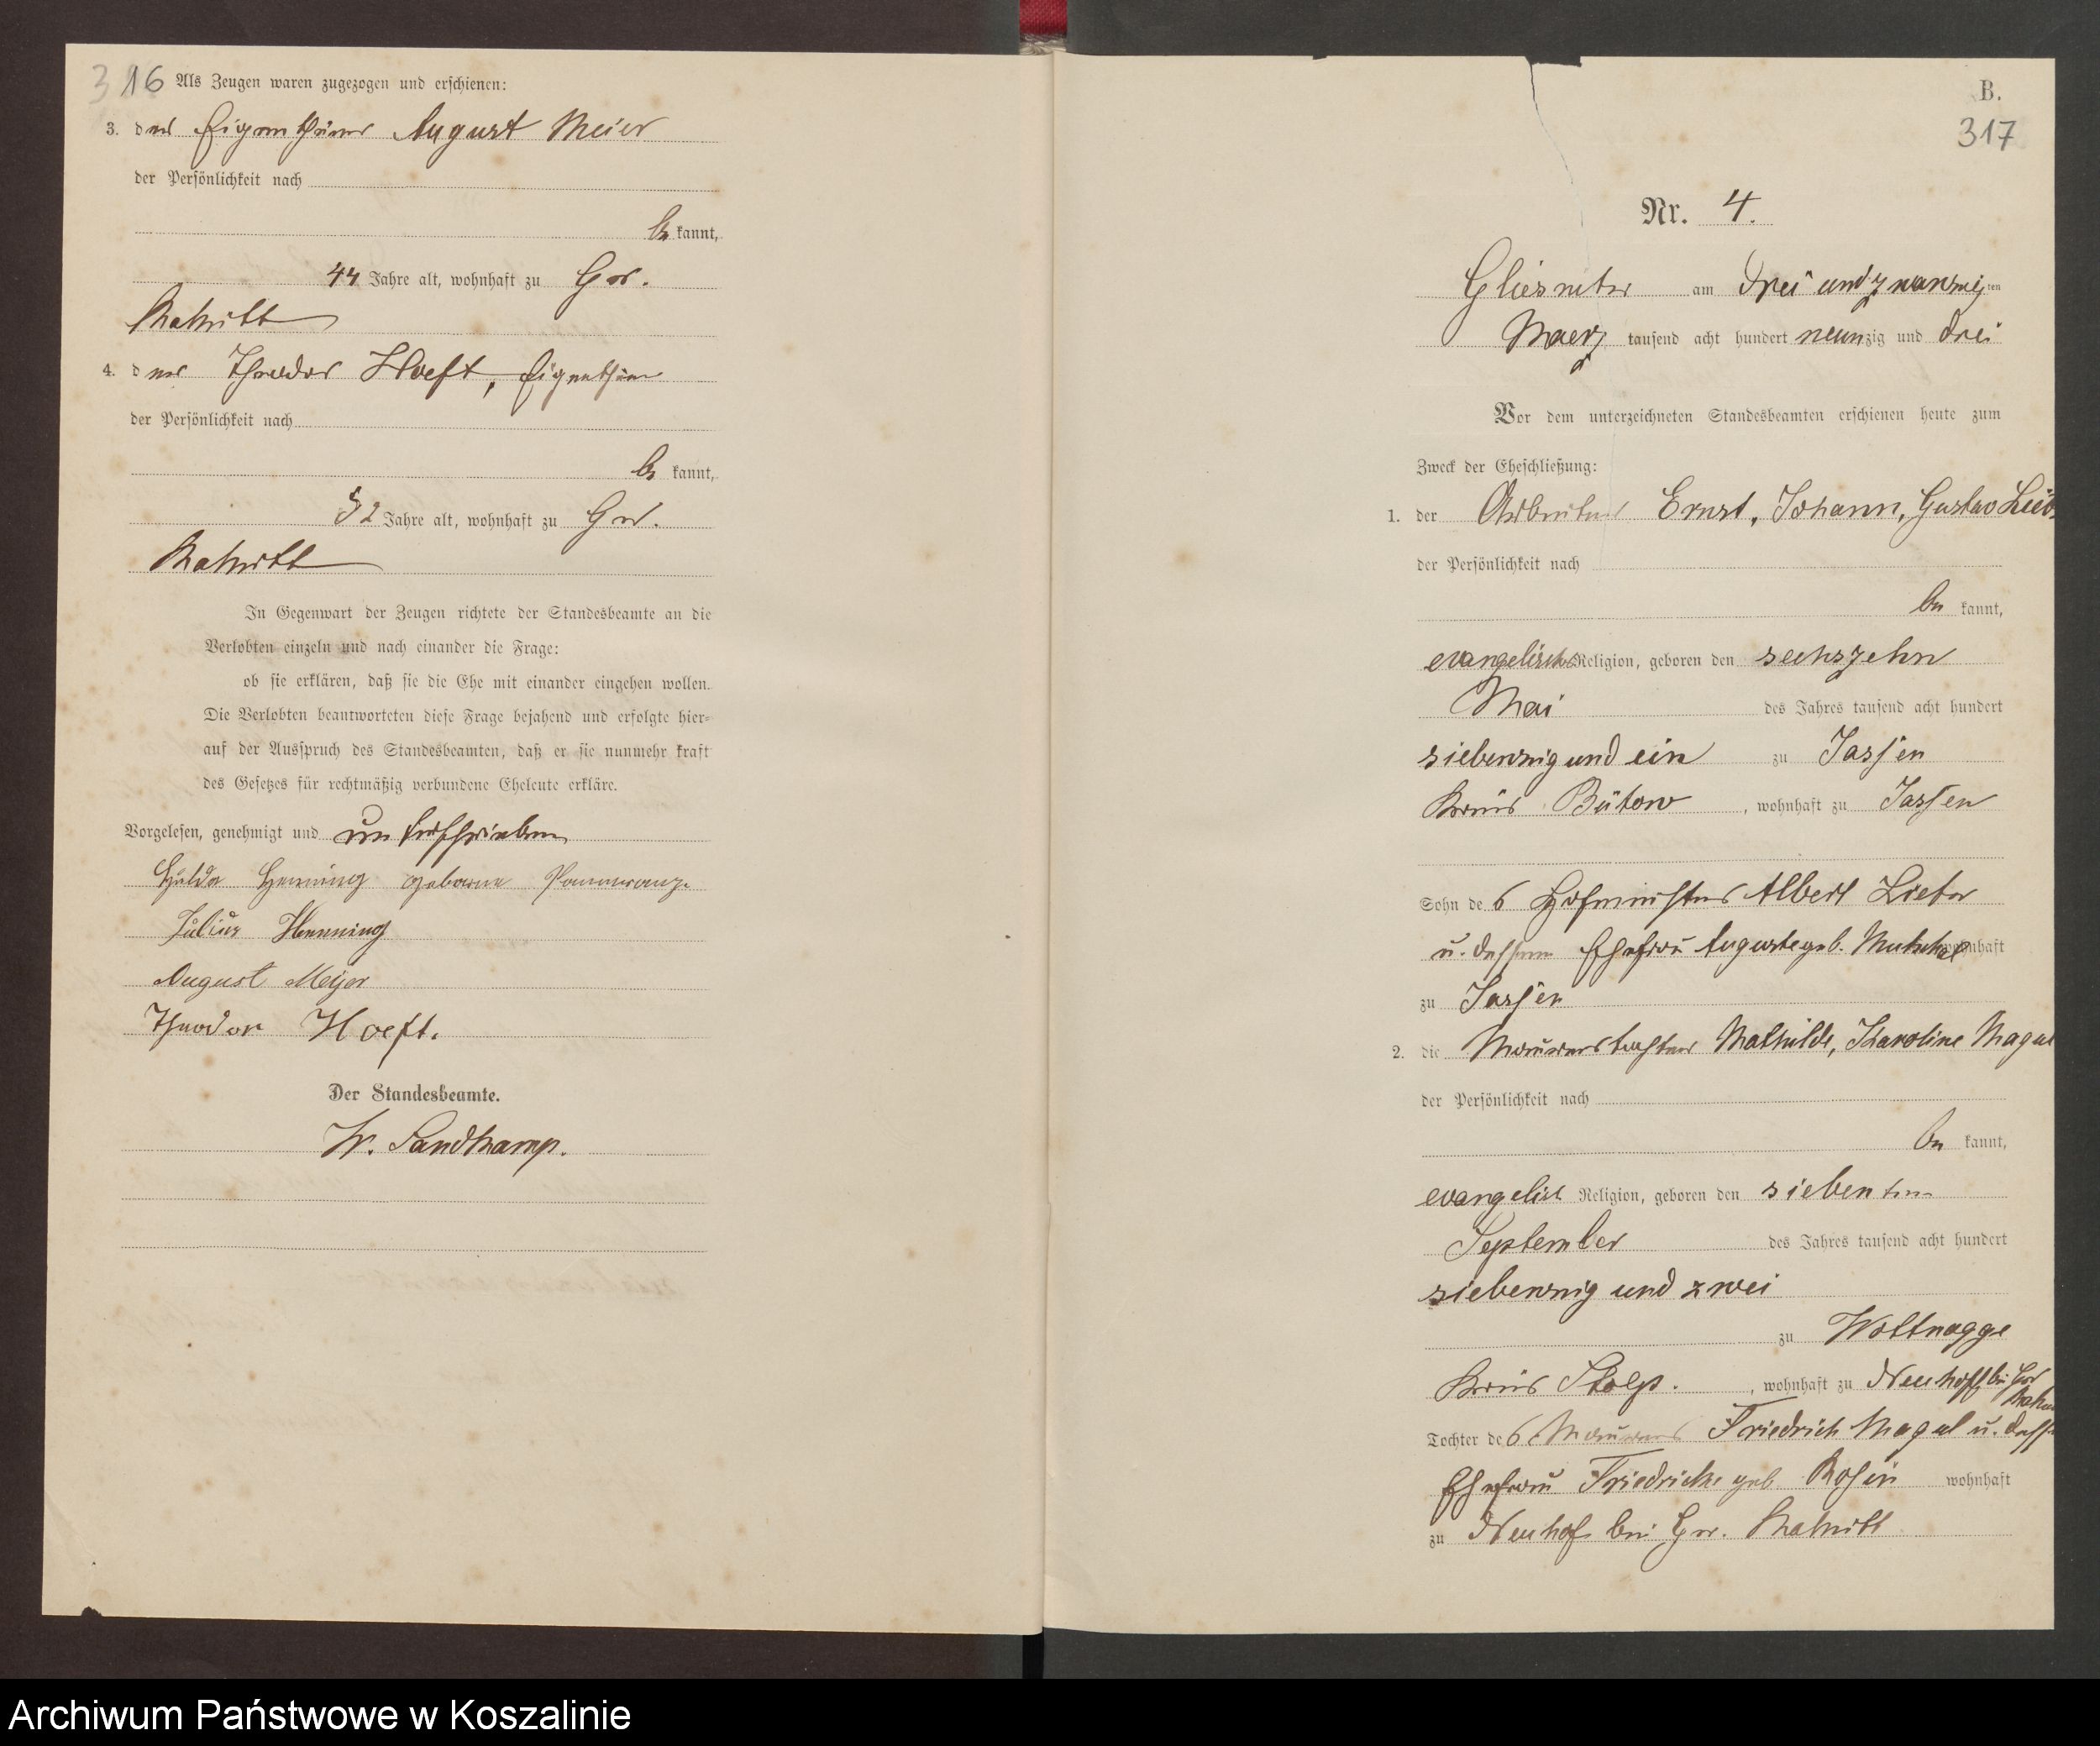 316 Als Zeugen waren zugezogen und erschienen:
3. der Eigenthümer August Meier
der Persönlichkeit nach
be kannt,
44 Jahre alt, wohnhaft zu Gr.
Rakitt
4. der Theodor Hoeft, Eigenthümer
der Persönlichkeit nach
be kannt,
52 Jahre alt, wohnhaft zu Gr.
Rakitt
In Gegenwart der Zeugen richtete der Standesbeamte an die
Verlobten einzeln und nach einander die Frage:
ob sie erklären, daß sie die Ehe mit einander eingehen wollen.
Die Verlobten beantworteten diese Frage bejahend und erfolgte hier=
auf der Ausspruch des Standesbeamten, daß er sie nunmehr kraft
des Gesetzes für rechtmäßig verbundene Eheleute erkläre.
Vorgelesen, genehmigt und unterschrieben
Hulda Henning geborne Pommerenz
Julius Henning
August Meyer
Theodor Hoeft.
Der Standesbeamte.
W. Sandkamp.
B.
317
Nr. 4.
Gliesnitz am drei und zwanzigten
Maerz tausend acht hundert neunzig und drei
Vor dem unterzeichneten Standesbeamten erschienen heute zum
Zweck der Eheschließung:
1. der Arbeiter Ernst, Johann, Gustav
der Persönlichkeit nach
be kannt,
evangelischer Religion, geboren den sechszehn
Mai des Jahres tausend acht hundert
siebenzig und ein zu Jassen
Kreis Bütow, wohnhaft zu Jassen
Sohn des Hofmeisters Albert
u. dessen Ehefrau Auguste geb. wohnhaft
zu Jassen
2. die Maurerstochter Mathilde, Karoline Magul
der Persönlichkeit nach
be kannt,
evangelisch Religion, geboren den siebenten
September des Jahres tausend acht hundert
siebenzig und zwei
zu Wottnogge
Kreis Stolp., wohnhaft zu Neuhoff bei Gr
Rakitt
Tochter des Maurers Friedrich Magul u. dessen
Ehefrau Friedricke geb Rosin wohnhaft
zu Neuhof bei Gr. Rakitt
Archiwum Państwowe w Koszalinie